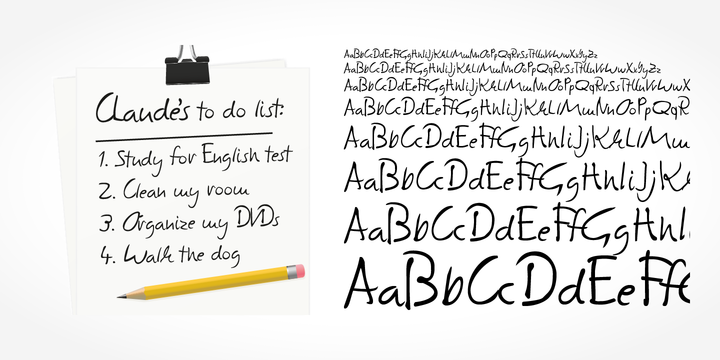 Claude's to do list:
1. Study for English test
2. Clean my room
3. Organize my DVDs
4. Walk the dog
AaBbCcDdEeFfGgHhIiJjKkLlMmNnOoPpQqRrSsTtUuVvWwXxYyZz
AaBbCcDdEeFfGgHhIiJjKkLlMmNnOoPpQqRrSsTtUuVvWwXxYyZz
AaBbCcDdEeFfGgHhIiJjKkLlMmNnOoPpQqRrSsTtUuVvWwXx
AaBbCcDdEeFfGgHhIiJjKkLlMmNnOoPpQqR
AaBbCcDdEeFfGgHhIiJjKkLlMm
AaBbCcDdEeFfGgHhIiJjK
AaBbCcDdEeFfGgHhI
AaBbCcDdEeFf